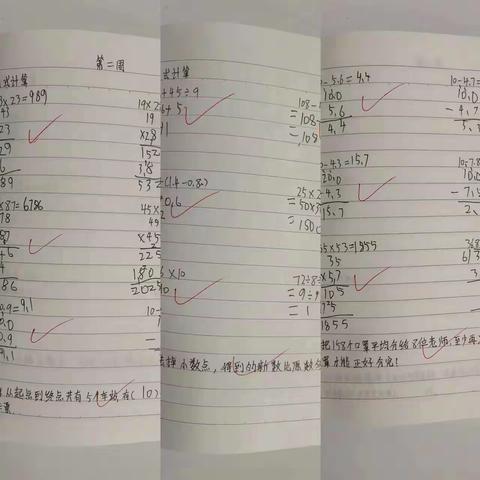 第二周
式计算
3×23=989
43
23
29
6
89
19×2
19
×28
152
38
532
×87=6786
78
87
46
4
86
45×4
45
×45
225
180
2025
0.9=9.1
0.0
0.9
9.1
10-
从起点到终点共有5个车站,有(10)
式计算
+45÷9
6+5
11
108-
=108-
=108
(1.4-0.8)
0.6
25×2
=50×3
=150
×10
72÷8÷
=9÷9
=1
去掉小数点,得到的新数比原数
-5.6=4.4
10.0
5.6
4.4
10-4.7=
10.0
-4.7
5.
-4.3=15.7
20.0
-4.3
15.7
10.0
-7.
2.
35×53=1855
35
105
1855
368
613
3
把158个口罩平均分给8位老师,至少再
算才能正好分完?